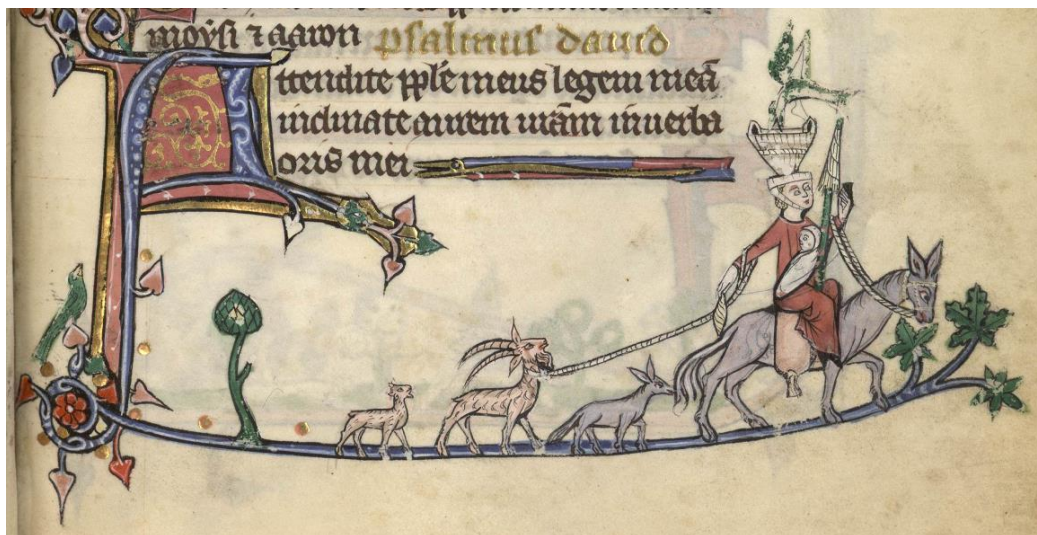 moysi ⁊ aaron psalmus dauid
Attendite pple meus legem meā
inclinate aurem urām in uerba
oris mei